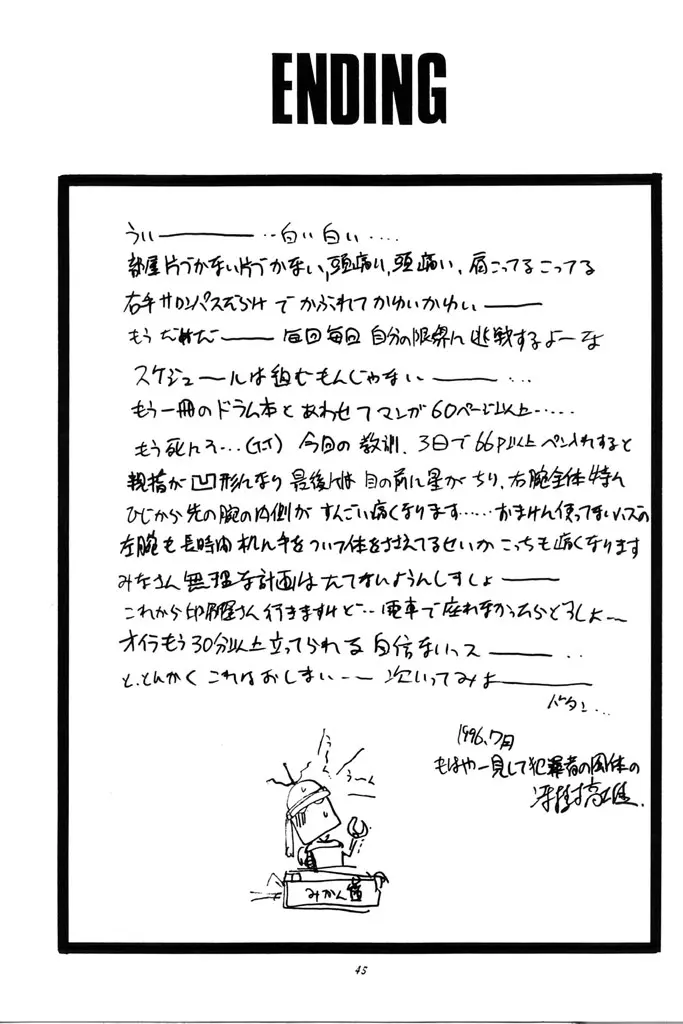 ENDING
うぃ――――‥白い白い‥‥
部屋片づかない片づかない,頭痛い,頭痛い,肩こってるこってる
右手サロンパスだらけでかぶれてかゆいかゆい――
もうだめだ――毎回毎回自分の限界に挑戦するよーな
スケジュールは組むもんじゃない――‥
もう一冊のドラム本とあわせてマンガ60ページ以上‥‥‥
もう死んス‥‥(T.T) 今回の教訓、3日で66P以上ペン入れすると
親指が凹形になり最後には目の前に星がちり、右腕全体特に
ひじから先の腕の内側がすんごい痛くなります‥‥‥おまけに使ってないハズの
左腕も長時間机に手をついて体をささえてるせいかこっちも痛くなります
みなさん無理な計画はたてないようにしましょ――
これから印刷屋さん行きますけど‥電車で座れなかったらどうしよ~
オイラもう30分以上立ってられる自信ないっス――‥
と、とにかくこれはおしまい~次いってみよ――――
バタン‥‥
1996,7月
もはや一見して犯罪者の風体の
う~ん
う~ん
みかん箱
45